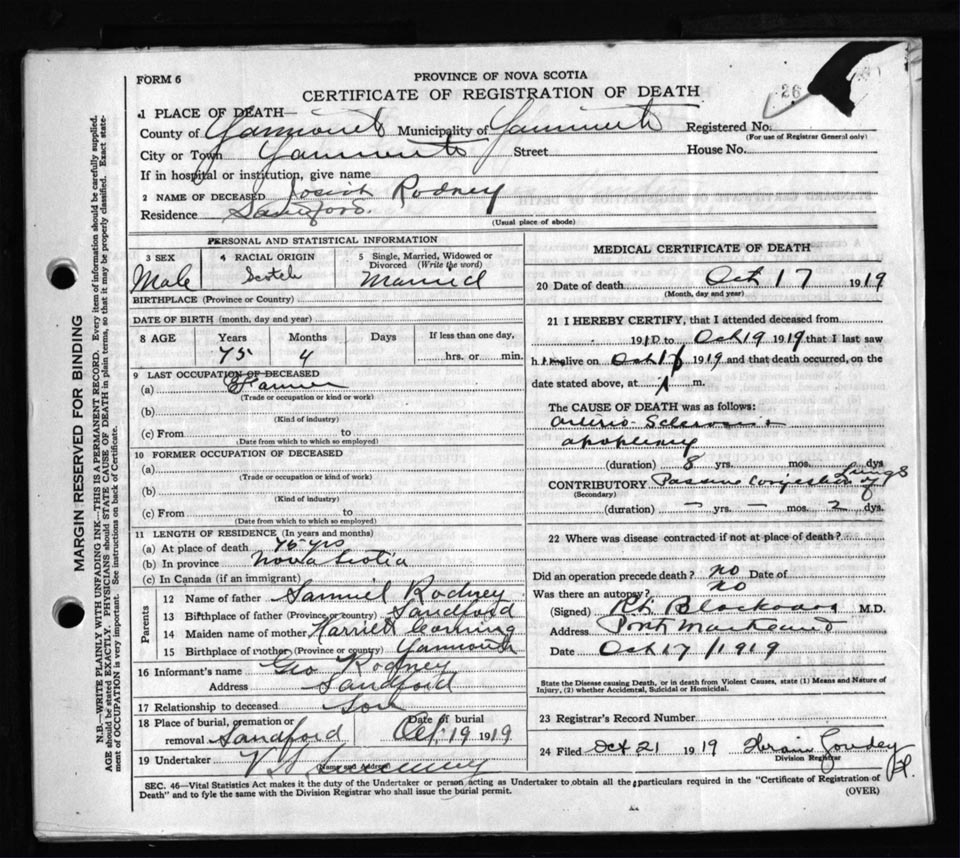 FORM 6
PROVINCE OF NOVA SCOTIA
26
CERTIFICATE OF REGISTRATION OF DEATH
1 PLACE OF DEATH—
County of Yarmouth Municipality of Yarmouth Registered No.
(For use of Registrar General only)
City or Town Yarmouth Street House No.
If in hospital or institution, give name
2 NAME OF DECEASED Josiah Rodney
Residence Sandford.
(Usual place of abode)
PERSONAL AND STATISTICAL INFORMATION
3 SEX 4 RACIAL ORIGIN 5 Single, Married, Widowed or Divorced (Write the word)
Male Scotch Married
BIRTHPLACE (Province or Country)
DATE OF BIRTH (month, day and year)
8 AGE Years Months Days If less than one day,
75 4 hrs. or min.
9 LAST OCCUPATION OF DECEASED
(a) Farmer
(Trade or occupation or kind or work)
(b)
(Kind of industry)
(c) From to
(Date from which to which so employed)
10 FORMER OCCUPATION OF DECEASED
(a)
(Trade or occupation or kind of work)
(b)
(Kind of industry)
(c) From to
(Date from which to which so employed)
11 LENGTH OF RESIDENCE (In years and months)
(a) At place of death 75 yrs
(b) In province Nova Scotia
(c) In Canada (if an immigrant)
Parents
12 Name of father Samuel Rodney
13 Birthplace of father (Province or country) Sandford
14 Maiden name of mother Harriet Corning
15 Birthplace of mother (Province or country) Yarmouth
16 Informant's name Geo Rodney
Address Sandford
17 Relationship to deceased Son
18 Place of burial, cremation or removal Sandford Date of burial Oct. 19 1919
19 Undertaker
MEDICAL CERTIFICATE OF DEATH
20 Date of death Oct 17 1919
(Month, day and year)
21 I HEREBY CERTIFY, that I attended deceased from
191 to Oct 19 1919 that I last saw
him alive on Oct 1 1919 and that death occurred, on the
date stated above, at 1 m.
The CAUSE OF DEATH was as follows:
Arterio-Sclerosis +
apoplexy
(duration) 8 yrs. mos. dys
CONTRIBUTORY Passive Congestion of Lungs
(Secondary)
(duration) — yrs. — mos. 2 dys.
22 Where was disease contracted if not at place of death?
Did an operation precede death? no Date of
Was there an autopsy? no
(Signed) M.D.
Address Port Maitland
Date Oct 17 / 1919
State the Disease causing Death, or in death from Violent Causes, state (1) Means and Nature of
Injury, (2) whether Accidental, Suicidal or Homicidal.
23 Registrar's Record Number
24 Filed Oct 21 1919
Division Registrar
SEC. 46—Vital Statistics Act makes it the duty of the Undertaker or person acting as Undertaker to obtain all the particulars required in the "Certificate of Registration of
Death" and to fyle the same with the Division Registrar who shall issue the burial permit.
(OVER)
MARGIN RESERVED FOR BINDING
N.B.—WRITE PLAINLY WITH UNFADING INK—THIS IS A PERMANENT RECORD. Every item of information should be carefully supplied.
AGE should be stated EXACTLY. PHYSICIANS should STATE CAUSE OF DEATH in plain terms, so that it may be properly classified. Exact statement of OCCUPATION is very important. See instructions on back of Certificate.